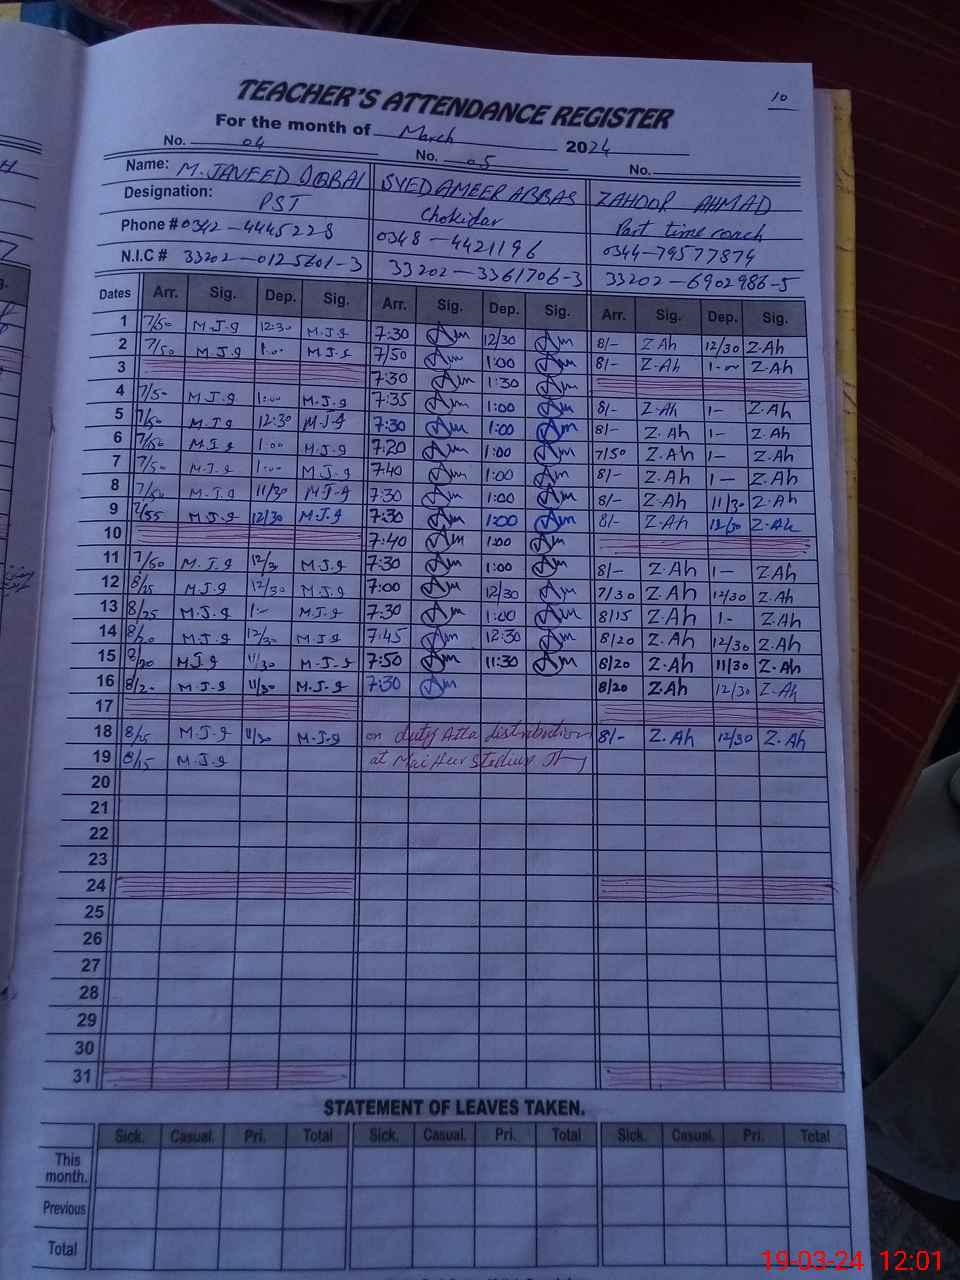 10
TEACHER'S ATTENDANCE REGISTER
For the month of March 2024
No. 04 No. 05 No.
Name: M. JAVEED IQBAL SYED AMEER ABBAS ZAHOOR AHMAD
Designation: PST Chokidar Part time coach
Phone # 0342-4445228 0348-4421196 0344-7957787
N.I.C # 33202-0125601-3 33202-3361706-3 33202-6902986-5
Dates Arr. Sig. Dep. Sig. Arr. Sig. Dep. Sig. Arr. Sig. Dep. Sig.
1 7/50 M.J.I 12:30 M.J.I 7:30 12/30 8/- Z.Ah 12/30 Z.Ah
2 7/50 M.J.I 1:00 M.J.I 7/50 1:00 8/- Z.Ah 1-- Z.Ah
3 7:30 1:30
4 7/50 M.J.I 1:00 M.J.I 7:35 1:00 8/- Z.Ah 1- Z.Ah
5 7/50 M.J.I 12:30 M.J.I 7:30 1:00 8/- Z.Ah 1- Z.Ah
6 7/50 M.J.I 1:00 M.J.I 7:20 1:00 7/50 Z.Ah 1- Z.Ah
7 7/50 M.J.I 1:00 M.J.I 7:40 1:00 8/- Z.Ah 1- Z.Ah
8 7/50 M.J.I 11/30 M.J.I 7:30 1:00 8/- Z.Ah 11/30 Z.Ah
9 7/55 M.J.I 12/30 M.J.I 7:30 1:00 8/- Z.Ah 12/30 Z.Ah
10 7:40 1:00
11 7/50 M.J.I 12/30 M.J.I 7:30 1:00 8/- Z.Ah 1- Z.Ah
12 8/25 M.J.I 12/30 M.J.I 7:00 12/30 7/30 Z.Ah 12/30 Z.Ah
13 8/25 M.J.I 1:- M.J.I 7:30 1:00 8/15 Z.Ah 1- Z.Ah
14 8/20 M.J.I 12/30 M.J.I 7:45 12:30 8/20 Z.Ah 12/30 Z.Ah
15 8/20 M.J.I 11/30 M.J.I 7:50 11:30 8/20 Z.Ah 11/30 Z.Ah
16 8/20 M.J.I 11/30 M.J.I 7:30 8/20 Z.Ah 12/30 Z.Ah
17
18 8/15 M.J.I 11/30 M.J.I on duty Atta distribution 8/- Z.Ah 12/30 Z.Ah
19 8/15 M.J.I at Mai Heer Stadium
20
21
22
23
24
25
26
27
28
29
30
31
STATEMENT OF LEAVES TAKEN.
Sick. Casual. Pri. Total Sick. Casual. Pri. Total Sick. Casual. Pri. Total
This month.
Previous
Total
19-03-24 12:01